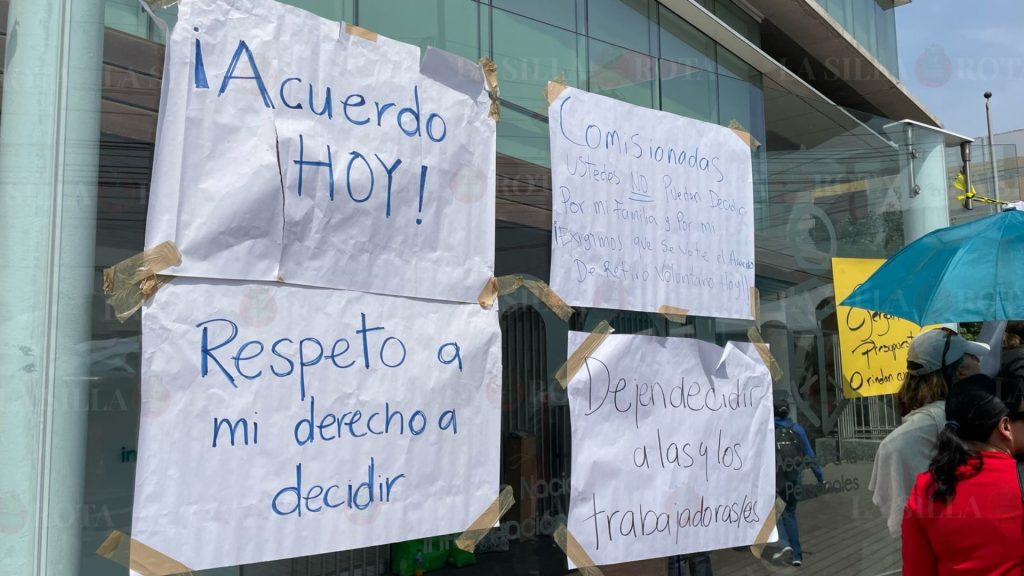 ¡Acuerdo
HOY!
Respeto a
mi derecho a
decidir
Comisionadas
Ustedes NO Pueden Decidir
Por mi Familia y Por mi
¡Exigimos que se vote el Acuerdo
De Retiro Voluntario Hoy!!
Dejendecidir
a las y los
trabajadoras/es
Presupue
O rindan cu
Nacio
Personales
LA SILLA ROTA